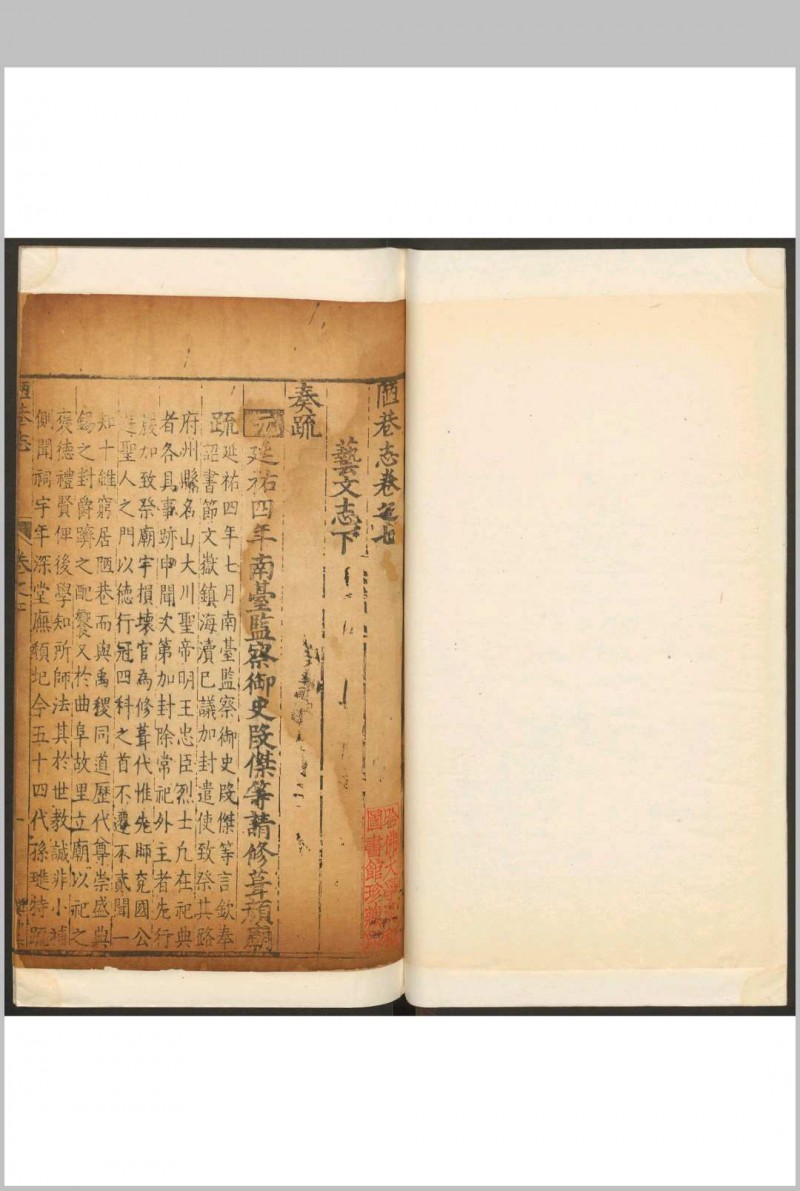 陋巷志卷之七
藝文志下
奏疏
元延祐四年南臺監察御史段傑等請修葺顏廟
疏延祐四年七月南臺監察御史段傑等言欽奉
詔書節文嶽鎮海瀆已議加封遣使致祭其路
府州縣名山大川聖帝明王忠臣烈士凡在祀典
者各具事跡申聞次第加封除常祀外主者先行
嚴加致祭廟宇損壞官為修葺代惟先師兗國公
聖人之門以德行冠四科之首不遷不貳聞一
知十雖窮居陋巷而與禹稷同道歷代尊崇盛典
錫之封爵躋之配饗又於曲阜故里立廟以祀之
褒德禮賢俾後學知所師法其於世教誠非小補
側聞祠宇年深堂廡頹圮今五十四代孫特疏
陋巷志
卷之七
哈佛大學
圖書館珍藏